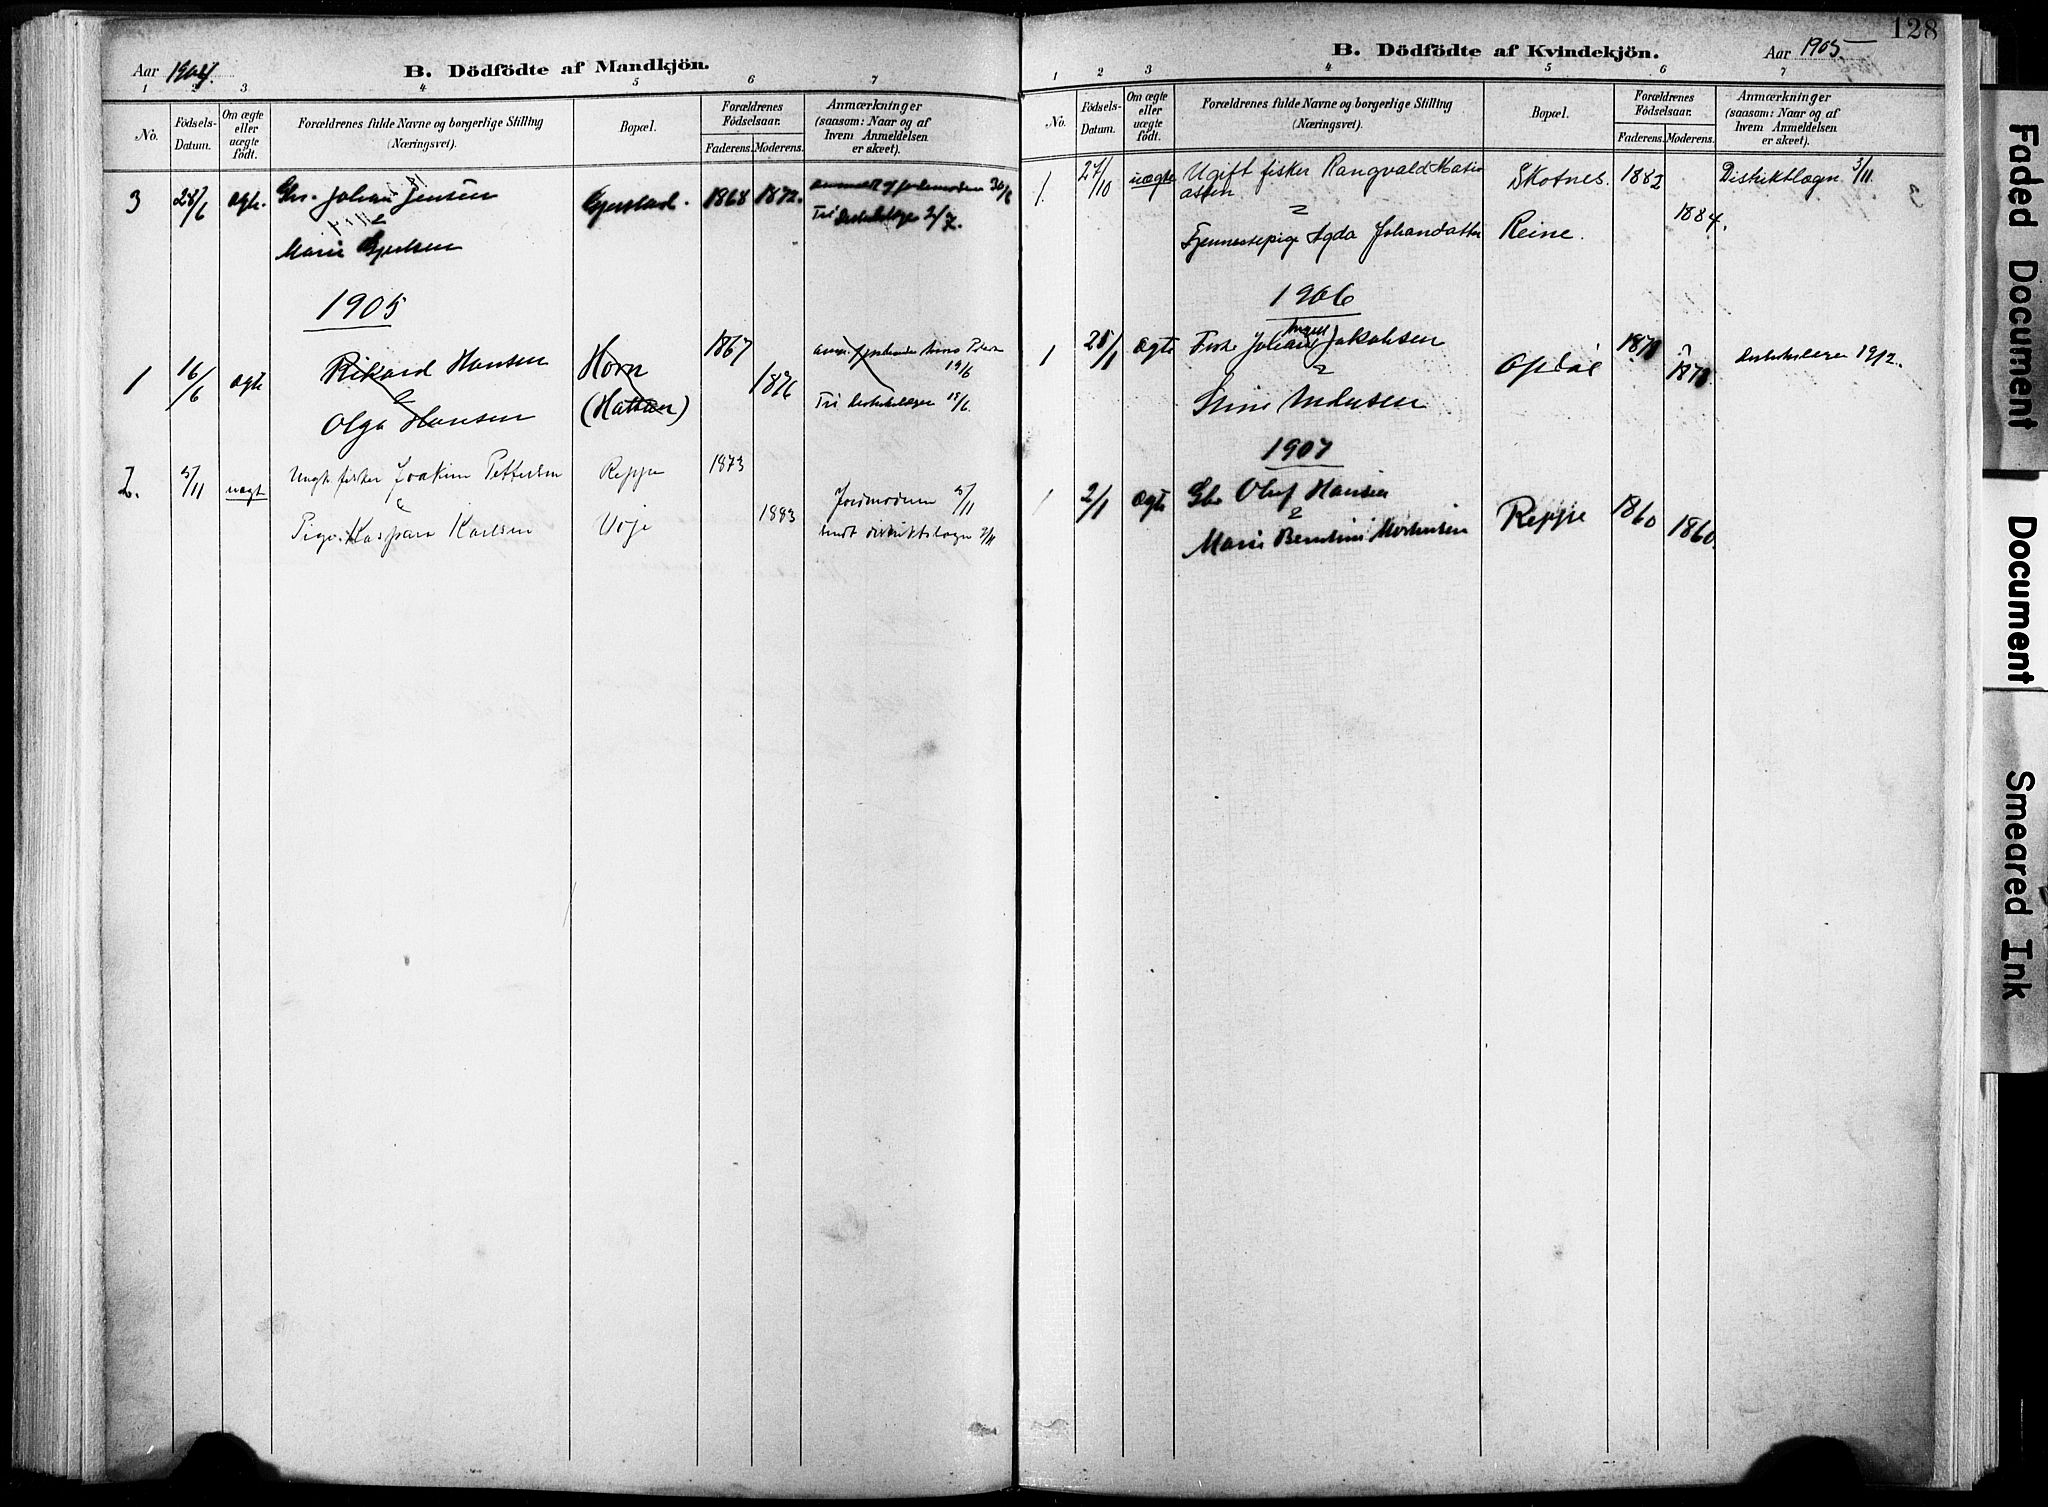 Aar 1904.
B. Dödfödte af Mandkjön.
1 2 3 4 5 6 7
No.
Födsels-
Datum.
Om ægte
eller
uægte
födt.
Forældrenes fulde Navne og borgerlige Stilling
(Næringsvei).
Bopæl.
Forældrenes
Födselsaar.
Faderens. Moderens.
Anmærkninger
(saasom: Naar og af
hvem Anmeldelsen
er skeet).
3 28/6 ægte. Gbr. Johan Jensen 1868 1872. 30/6
Til Distriktslægen 2/7.
Marie
1905
1 16/6 ægte Rikard Hansen Horn 1867 1876 19/6
Olga Hansen (Hatten) Til Distriktslægen 18/6.
2. 5/11 uægt Ungk. fisker Joakim Pettersen Reppe 1873
Pige Kaspara Karlsen 1883 Jordmoderen 5/11
sendt distriktslægen 3/11
128
B. Dödfödte af Kvindekjön.
Aar 1905
1 2 3 4 5 6 7
No.
Födsels-
Datum.
Om ægte
eller
uægte
födt.
Forældrenes fulde Navne og borgerlige Stilling
(Næringsvei).
Bopæl.
Forældrenes
Födselsaar.
Faderens. Moderens.
Anmærkninger
(saasom: Naar og af
hvem Anmeldelsen
er skeet).
1. 27/10 uægte Ugift fisker Rangvald Mati- Skotnes. 1882 Distriktlægn 3/11
assen
Tjenestepige Agda Johandatter Reine. 1884.
1906
1 28/1 ægte Fisker Johan Jakobsen Opdöl 1878 1878 19/2.
Stine
1907
1 2/1 ægte Gbr Oluf Hansen Reppe 1860
Marie Berntine Mortensen 1860.
Faded Document
Document
Smeared Ink